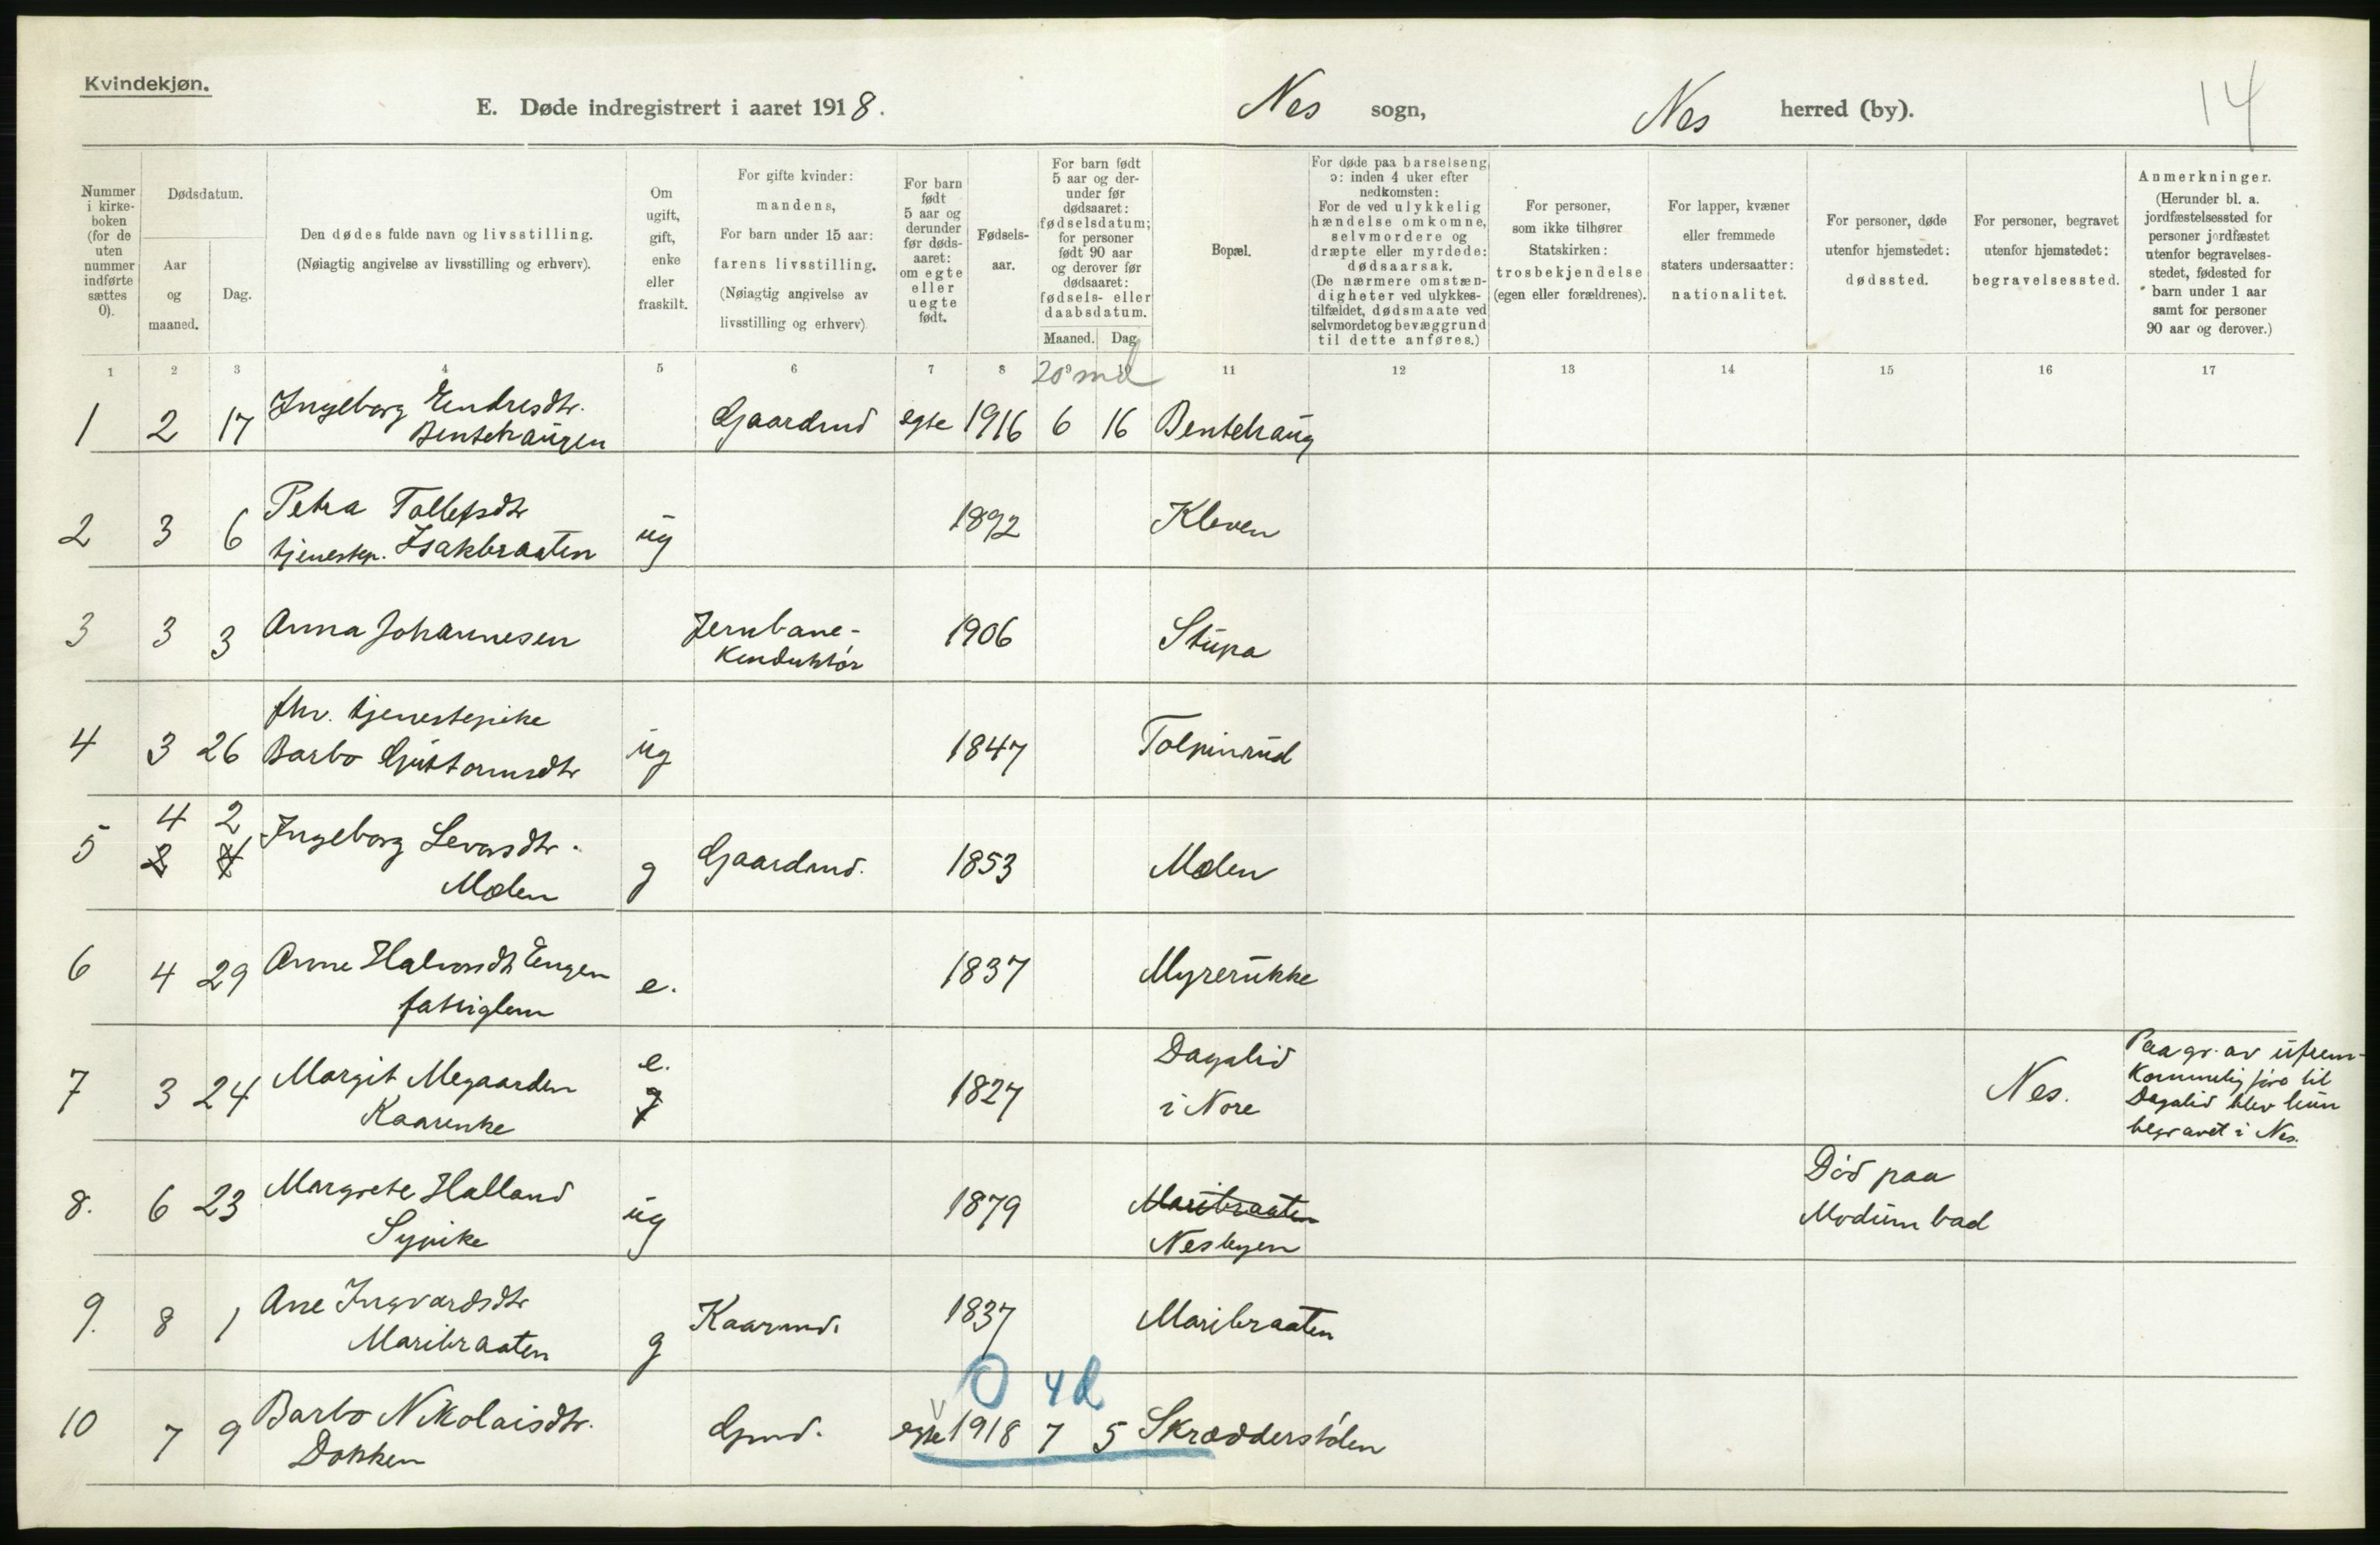 Kvindekjøn.
E. Døde indregistrert i aaret 1918.
Nes sogn,
Nes herred (by).
14
Nummer i kirke-boken (for de uten nummer indførte sættes 0).
Dødsdatum.
Aar og maaned.
Dag.
Den dødes fulde navn og livsstilling.
(Nøiagtig angivelse av livsstilling og erhverv).
Om ugift, gift, enke eller fraskilt.
For gifte kvinder: mandens,
For barn under 15 aar: farens livsstilling.
(Nøiagtig angivelse av livsstilling og erhverv)
For barn født 5 aar og derunder før døds-aaret: om egte eller uegte født.
Fødsels-aar.
For barn født 5 aar og der-under før dødsaaret: fødselsdatum; for personer født 90 aar og derover før dødsaaret: fødsels- eller daabsdatum.
Maaned. Dag
Bopæl.
For døde paa barselseng, ɔ: inden 4 uker efter nedkomsten: For de ved ulykkelig hændelse omkomne, selvmordere og dræpte eller myrdede: dødsaarsak. (De nærmere omstæn-digheter ved ulykkes-tilfældet, dødsmaate ved selvmordet og bevæggrund til dette anføres.)
For personer, som ikke tilhører Statskirken: trosbekjendelse (egen eller forældrenes).
For lapper, kvæner eller fremmede staters undersaatter: nationalitet.
For personer, døde utenfor hjemstedet: dødssted.
For personer, begravet utenfor hjemstedet: begravelsessted.
Anmerkninger.
(Herunder bl. a. jordfæstelsessted for personer jordfæstet utenfor begravelses-stedet, fødested for barn under 1 aar samt for personer 90 aar og derover.)
1 2 3 4 5 6 7 8 9 10 11 12 13 14 15 16 17
20 md
1 2 17 Ingeborg Endresdtr. Bentehaugen Gaardmd egte 1916 6 16 Bentehaug
2 3 6 Petra Tollefsdtr tjenestep. Isakbraaten ug 1892 Kleven
3 3 3 Anna Johannesen Jernbane-konduktör 1906 Stupa
4 3 26 fhv. tjenestepike Barbo Guttormsdtr ug 1847 Tolpinrud
5 4 2 Ingeborg Levorsdtr. Molen g Gaardmd. 1853 Molen
6 4 29 Anne Halvorsdtr Engen fattiglem e. 1837 Myrerukke
7 3 24 Margit Megaarden Kaarenke e. g 1827 Dagalid i Nore Nes. Paa gr. av ufrem-kommelig före til Dagalid blev hun begravet i Nes.
8. 6 23 Margrete Halland Sypike ug 1879 Maribraaten Nesbyen Död paa Modum bad
9. 8 1 Ane Ingvardsdtr Maribraaten g Kaarmd. 1837 Maribraaten
0 4d
10 7 9 Barbo Nikolaisdtr. Dokken Gmd. egte 1918 7 5 Skrædderstölen